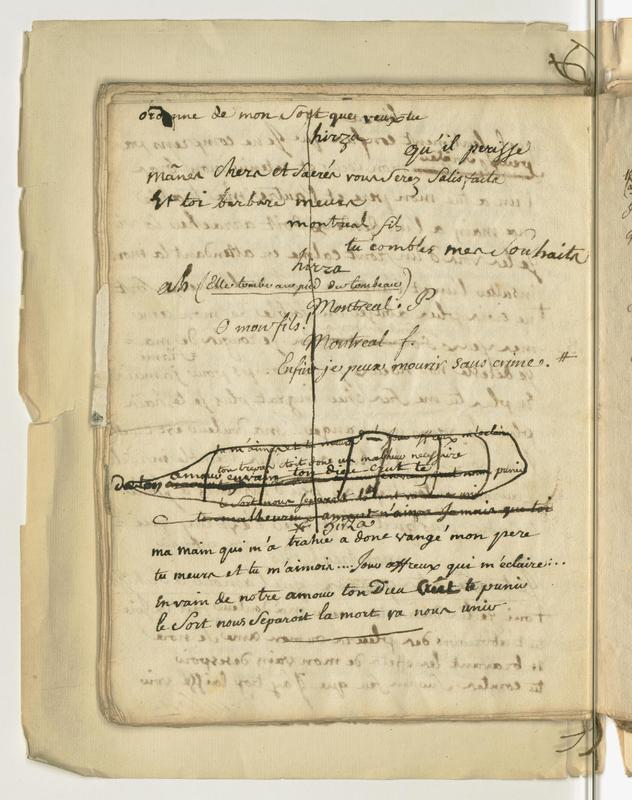 ordonne de mon Sort que veux tu
hirza
qu'il perisse
mânes chers et Sacrés vous serez Satisfaits
Et toi barbare meurs
montreal fils
tu combles mes souhaits
hirza
ah (Elle tombe aux pied du tombeau)
Montreal. P
O mon fils!
Montreal f.
Enfin je peux mourir sans crime. #
tu m'aimois et tu meurs jour affreux m'éclaire
ton trepas etoit donc un malheur necessaire
amour en vain ton dieu crut te
punir
le Sort nous Separoit
unir
malheureux amant n'aima jamais que toi
hirza
ma main qui m'a trahie a donc vangé mon pere
tu meurs et tu m'aimois .... Jour affreux qui m'éclaire ...
En vain de notre amour ton Dieu Crut te punir
le Sort nous Separoit la mort va nous unir